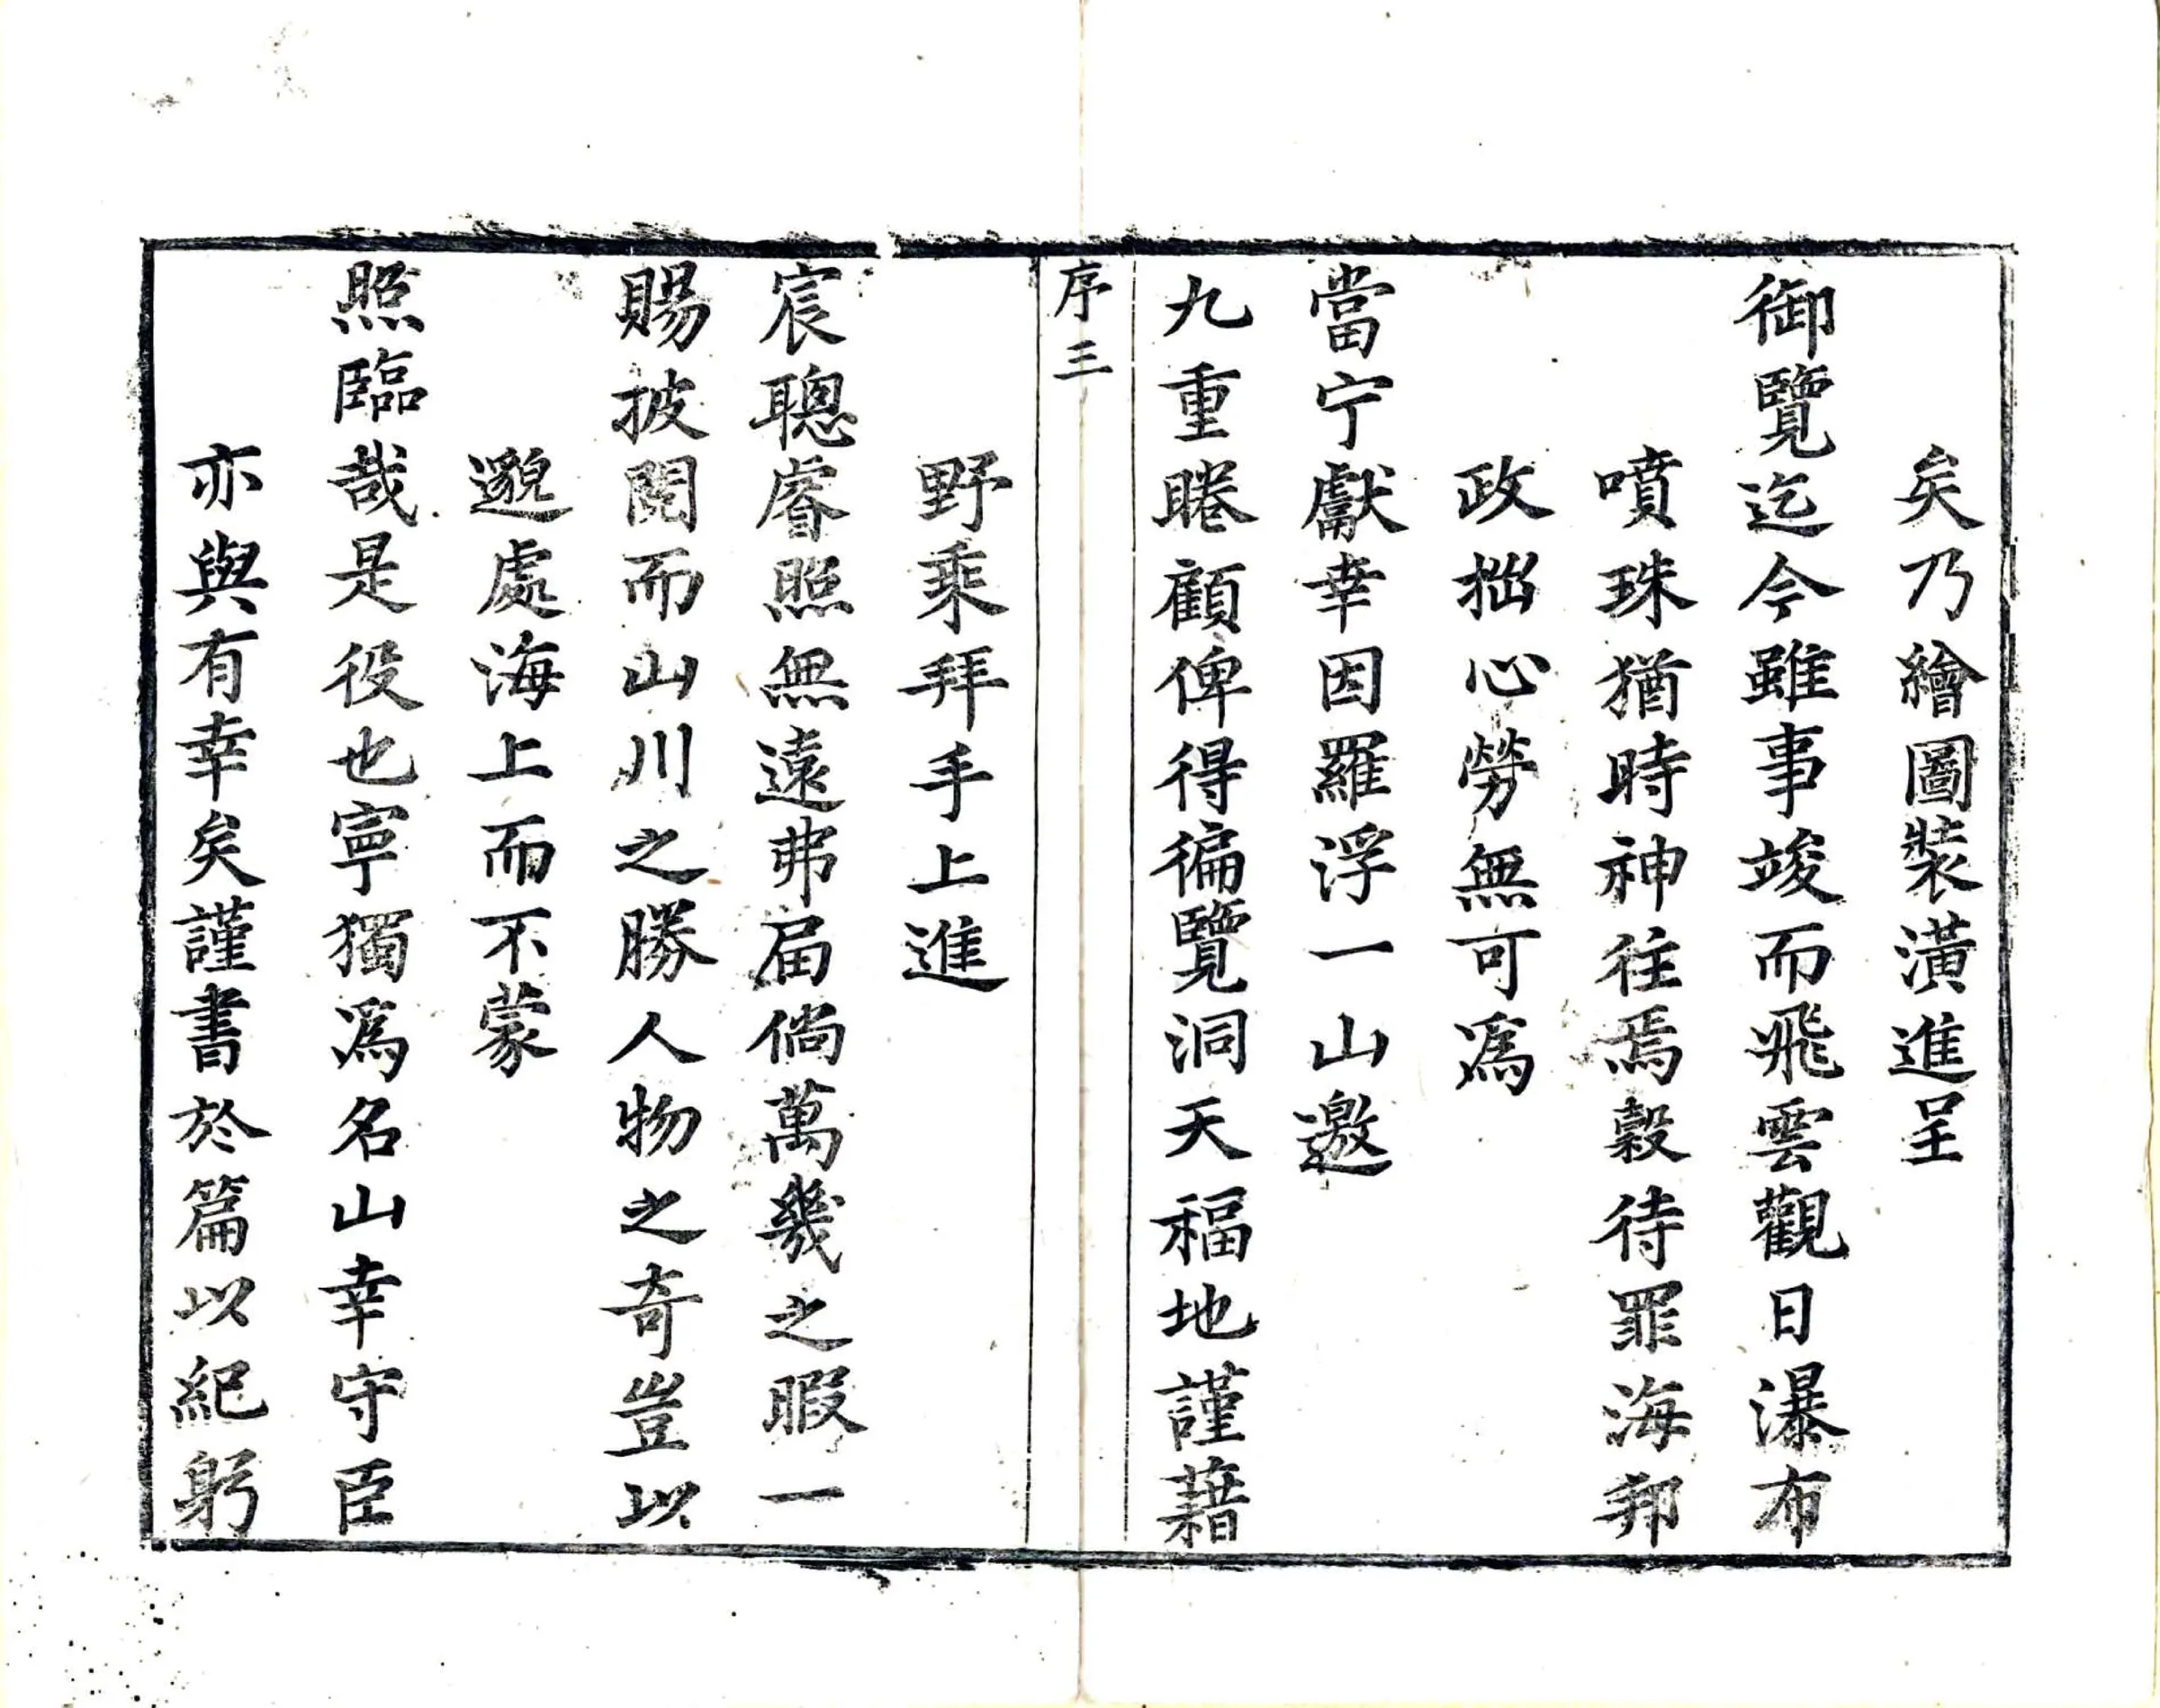 矣乃繪圖裝潢進呈
御覽迄今雖事竣而飛雲觀日瀑布
噴珠猶時神往焉穀待罪海邦
政拙心勞無可爲
當宁獻幸因羅浮一山邀
九重睠顧俾得徧覽洞天福地謹藉
序三
野乘拜手上進
宸聰睿照無遠弗屆倘萬幾之暇一
賜披閱而山川之勝人物之奇豈以
邈處海上而不蒙
照臨哉是役也寧獨爲名山幸守臣
亦與有幸矣謹書於篇以紀躬